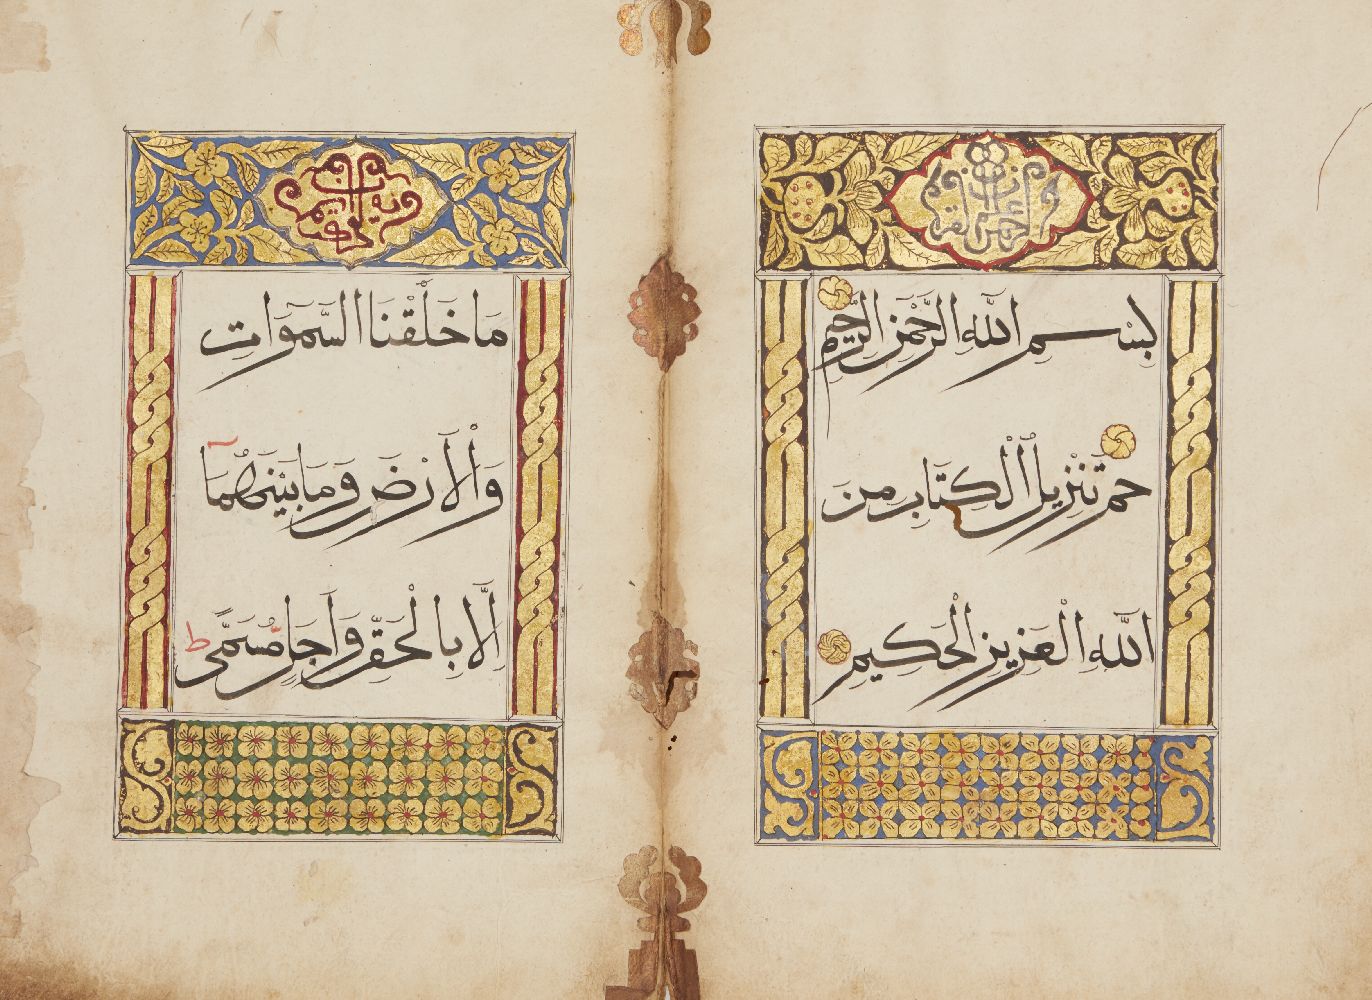 بِسْمِ اللَّهِ الرَّحْمَنِ الرَّحِيمِ
حم تَنْزِيلُ الْكِتَابِ مِنَ
اللَّهِ الْعَزِيزِ الْحَكِيمِ
مَا خَلَقْنَا السَّمَوَاتِ
وَالْأَرْضَ وَمَا بَيْنَهُمَا
إِلَّا بِالْحَقِّ وَأَجَلٍ مُسَمًّى ط